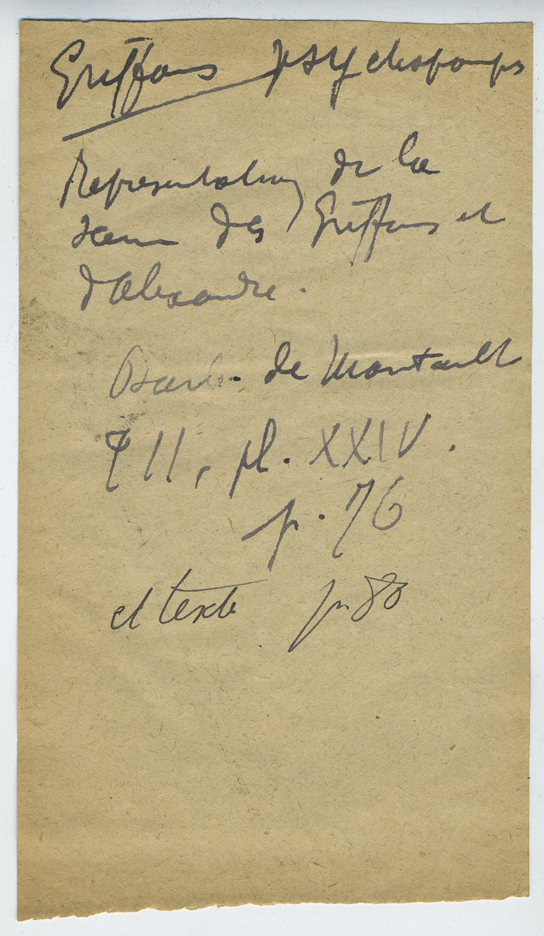 Griffons psychopomps
Representation de la
scene des Griffons et
d'Alexandre.
Barb. de Montault
T II, pl. XXIV.
p. 76
et texte p. 80